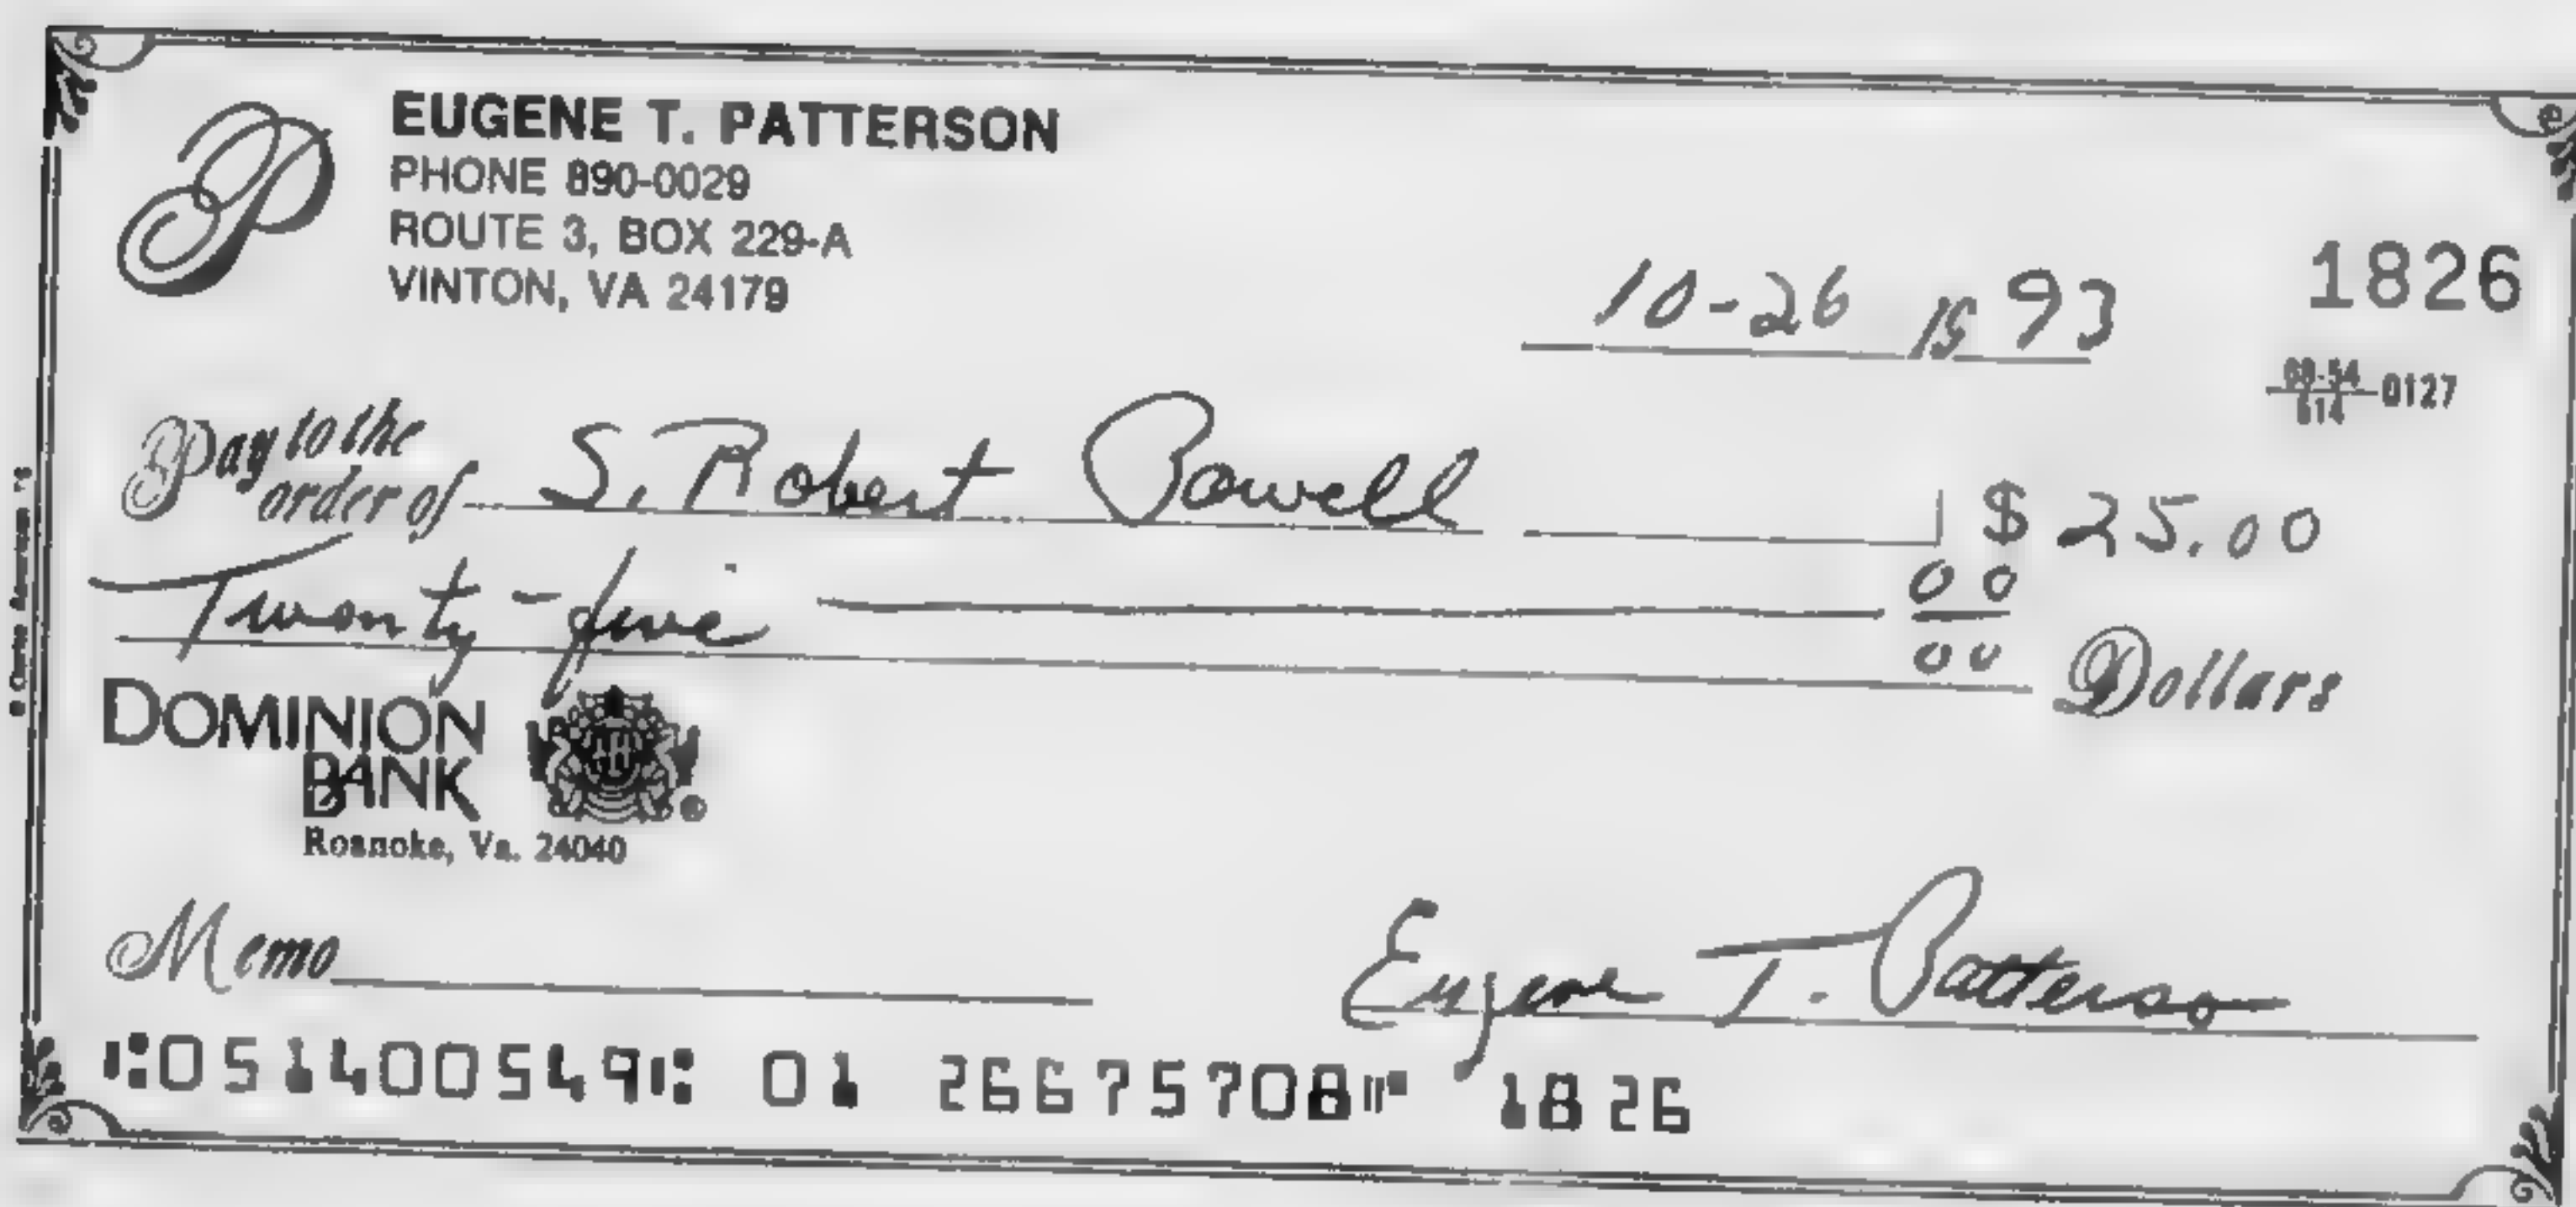 EUGENE T. PATTERSON
PHONE 890-0029
ROUTE 3, BOX 229-A
VINTON, VA 24179
1826
10-26 19 93
68-54
514 0127
Pay to the
order of S. Robert Powell $ 25.00
Twenty-five 00
00 Dollars
DOMINION
BANK
Roanoke, Va. 24040
Memo
Eugene T. Patterson
⑆051400549⑆ 01 26675708⑈ 1826